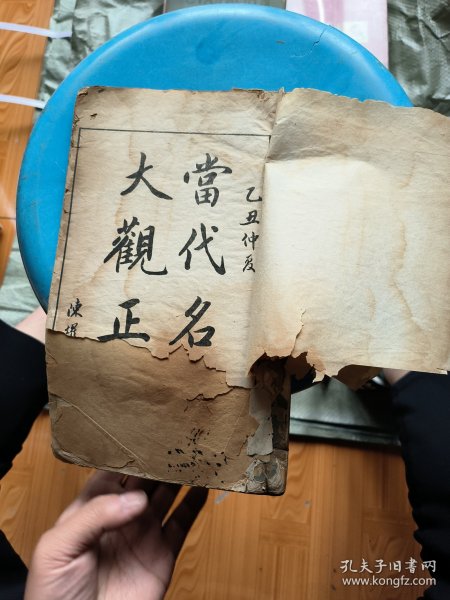 乙丑仲夏
當代名
大觀正
陳
孔夫子旧书网
www.kongfz.com